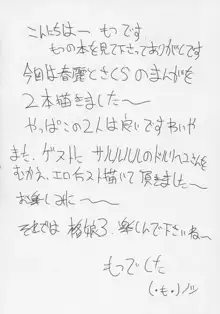 こんにちはー もっです
もっの本を見て下さってありがとです
今回は春麗とさくらのまんがを
2本描きました〜
やっぱこの2人は良いですわいや
また、ゲストに サルルルルのドルヘコさんを
むかえ、エロイラスト描いて頂きました〜
お楽しみに〜
それでは 格娘3、楽しんで下さいね〜
もっでした
(・も・)ノシ